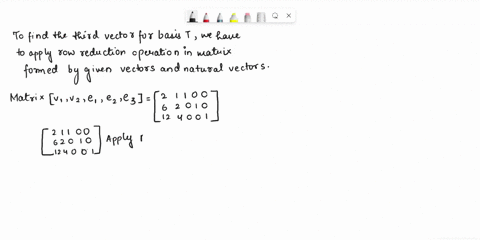 To find the third vector for basis T, we have
to apply row reduction operation in matrix
formed by given vectors and natural vectors.
Matrix [v₁, v₂, e₁, e₂, e₃] = [2 1 1 0 0
6 2 0 1 0
12 4 0 0 1]
[2 1 1 0 0
6 2 0 1 0
12 4 0 0 1] Apply